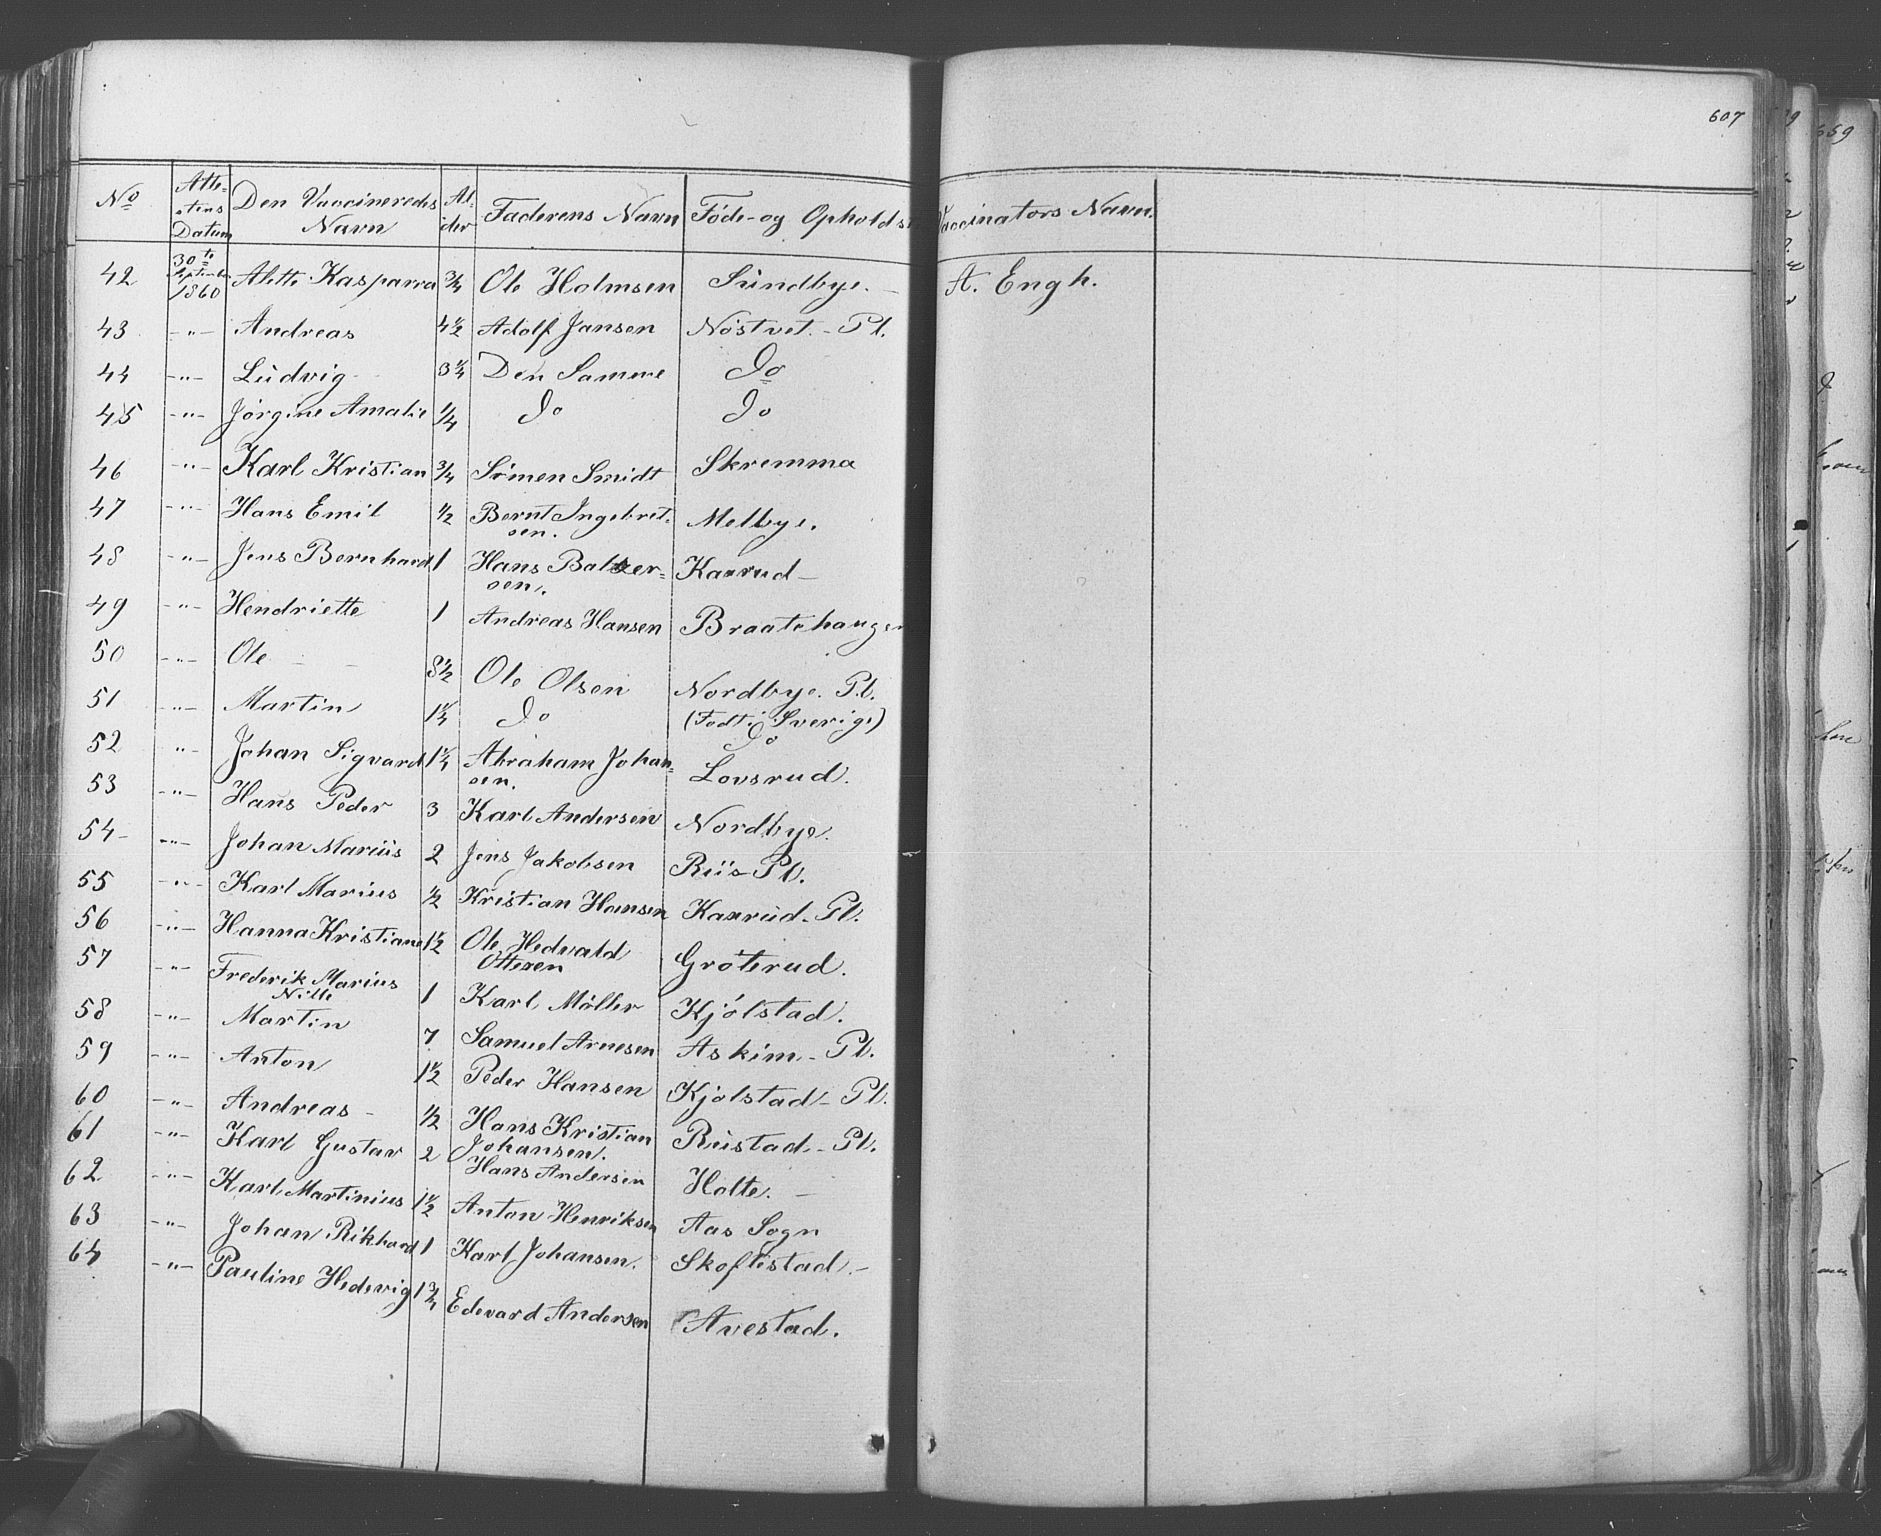 607
659
No Attestens Datum Den Vaccineredes Navn Alder Faderens Navn Føde- og Opholdst Vaccinators Navn.
42 30te September 1860 Alette Kasparra 3/4 Ole Holmsen Sundbye. A. Engh.
43 -"- Andreas 4 1/2 Adolf Jansen Nøstvet. - Pl.
44 -"- Ludvig 3 1/4 Den Samme Do
45 -"- Jørgine Amalie 1/4 Do Do
46 -"- Karl Kristian 3/4 Simen Smidt Skremma
47 -"- Hans Emil 1/2 Bernt Ingebretsen. Melbye.
48 -"- Jens Bernhard 1 Hans Balzersen. Kaxrud -
49 -"- Hendriette 1 Andreas Hansen Braatehaugen
50 -"- Ole 8 1/2 Ole Olsen Nordbye. Pl.
(Født i Sverige)
51 -"- Martin 1 1/4 Do Do
52 -"- Johan Sigvard 1 1/4 Abraham Johansen. Lovsrud.
53 -"- Hans Peder 3 Karl Andersen Nordbye.
54 -"- Johan Mariüs 2 Jens Jakobsen Riis Pl.
55 -"- Karl Marius 1/2 Kristian Hansen Kaxrud. Pl.
56 -"- Hanna Kristiane 1 1/2 Ole Hedvald Ottesen Grøterud.
57 -"- Frederik Marius 1 Karl Møller Kjølstad.
58 -"- Martin 7 Samuel Arnesen Askim - Pl.
59 -"- Anton 1 1/2 Peder Hansen Kjølstad - Pl.
60 -"- Andreas - 1/2 Hans Kristian Johansen. Rustad - Pl.
61 -"- Karl Gustav 2 Hans Andersen Holte. -
62 -"- Karl Martinius 1 1/2 Anton Henriksen Aas Sogn
63 -"- Johan Rikhard 1 Karl Johansen. Skoftestad. -
64 -"- Pauline Hedevig 1 3/4 Edevard Andersen Avestad.